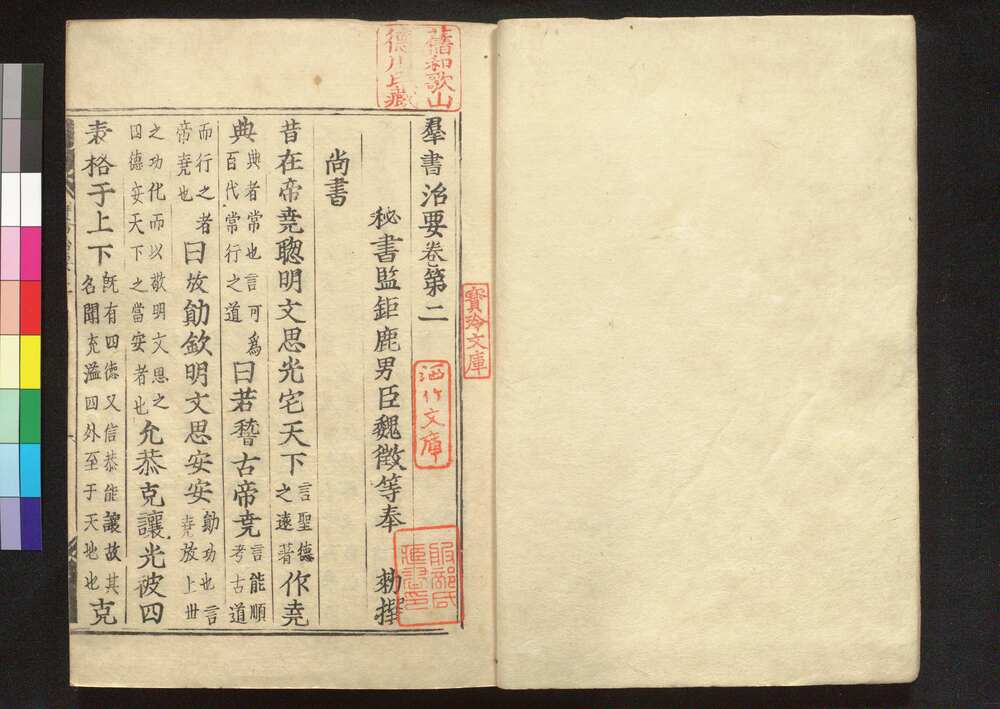 羣書治要卷第二
秘書監鉅鹿男臣魏徵等奉 勑撰
尚書
昔在帝堯聰明文思光宅天下言聖德之遠著作堯
典典者常也言可爲百代常行之道曰若稽古帝堯言能順考古道
而行之者帝堯也曰放勛欽明文思安安勛功也言堯放上世
之功化而以敬明文思之四德安天下之當安者也允恭克讓光被四
表格于上下旣有四德又信恭能讓故其名聞充溢四外至于天地也克
舊和歌山
德川氏藏
寶玲文庫
文庫
服部氏